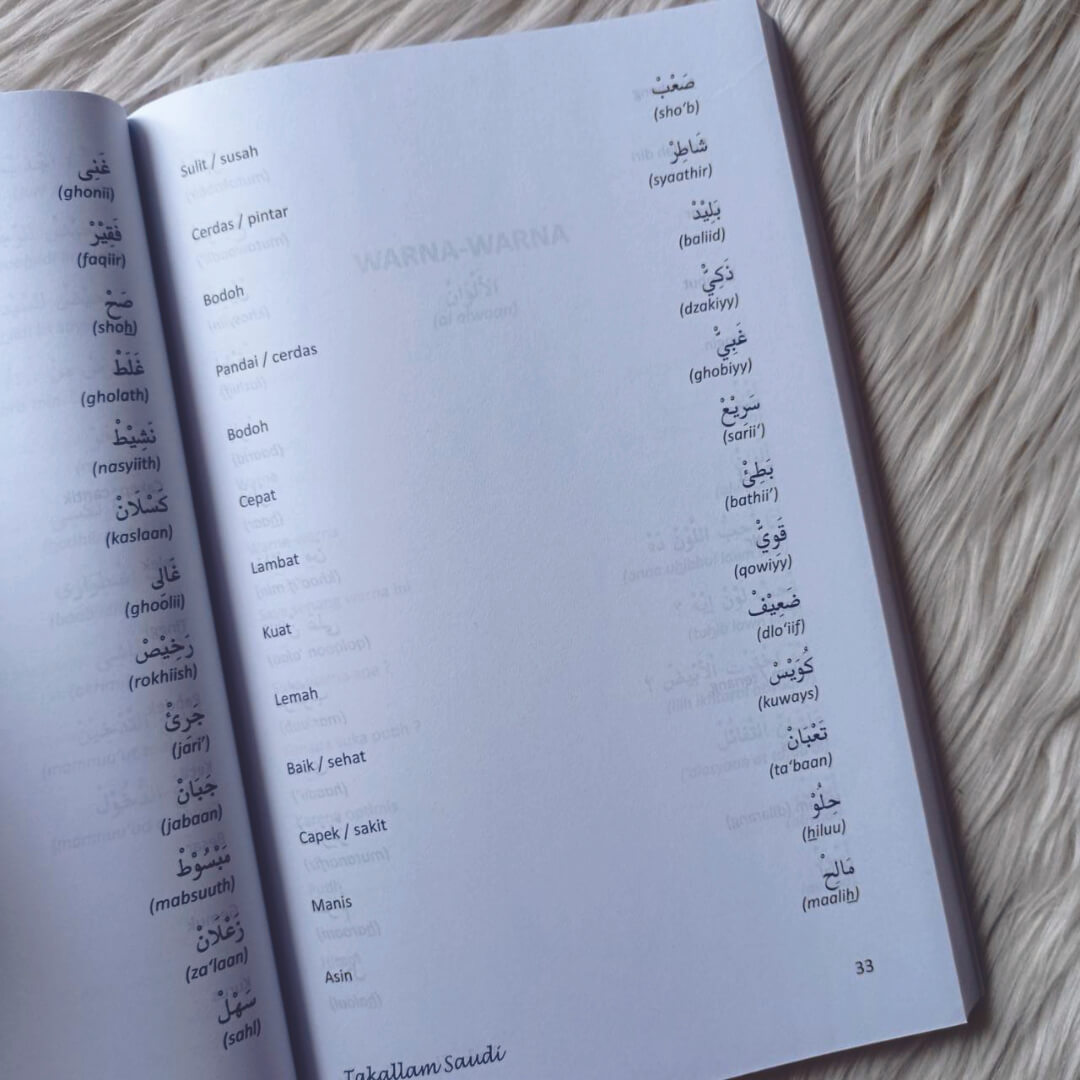 غَنِى
(ghonii)
فَقِيْرْ
(faqiir)
صَحْ
(shoh)
غَلَطْ
(gholath)
نَشِيْطْ
(nasyiith)
كَسْلَانْ
(kaslaan)
غَالِى
(ghoolii)
رَخِيْصْ
(rokhiish)
جَرِئْ
(jari')
جَبَانْ
(jabaan)
مَبْسُوْطْ
(mabsuuth)
زَعْلَانْ
(za'laan)
سَهْلْ
(sahl)
Sulit / susah
صَعْبْ
(sho'b)
Cerdas / pintar
شَاطِرْ
(syaathir)
Bodoh
بَلِيْدْ
(baliid)
Pandai / cerdas
ذَكِيّْ
(dzakiyy)
Bodoh
غَبِيّْ
(ghobiyy)
Cepat
سَرِيْعْ
(sarii')
Lambat
بَطِئْ
(bathii')
Kuat
قَوِيّْ
(qowiyy)
Lemah
ضَعِيْفْ
(dlo'iif)
Baik / sehat
كُوَيْسْ
(kuways)
Capek / sakit
تَعْبَانْ
(ta'baan)
Manis
حِلُوْ
(hiluu)
Asin
مَالِحْ
(maalih)
33
Takallam Saudi